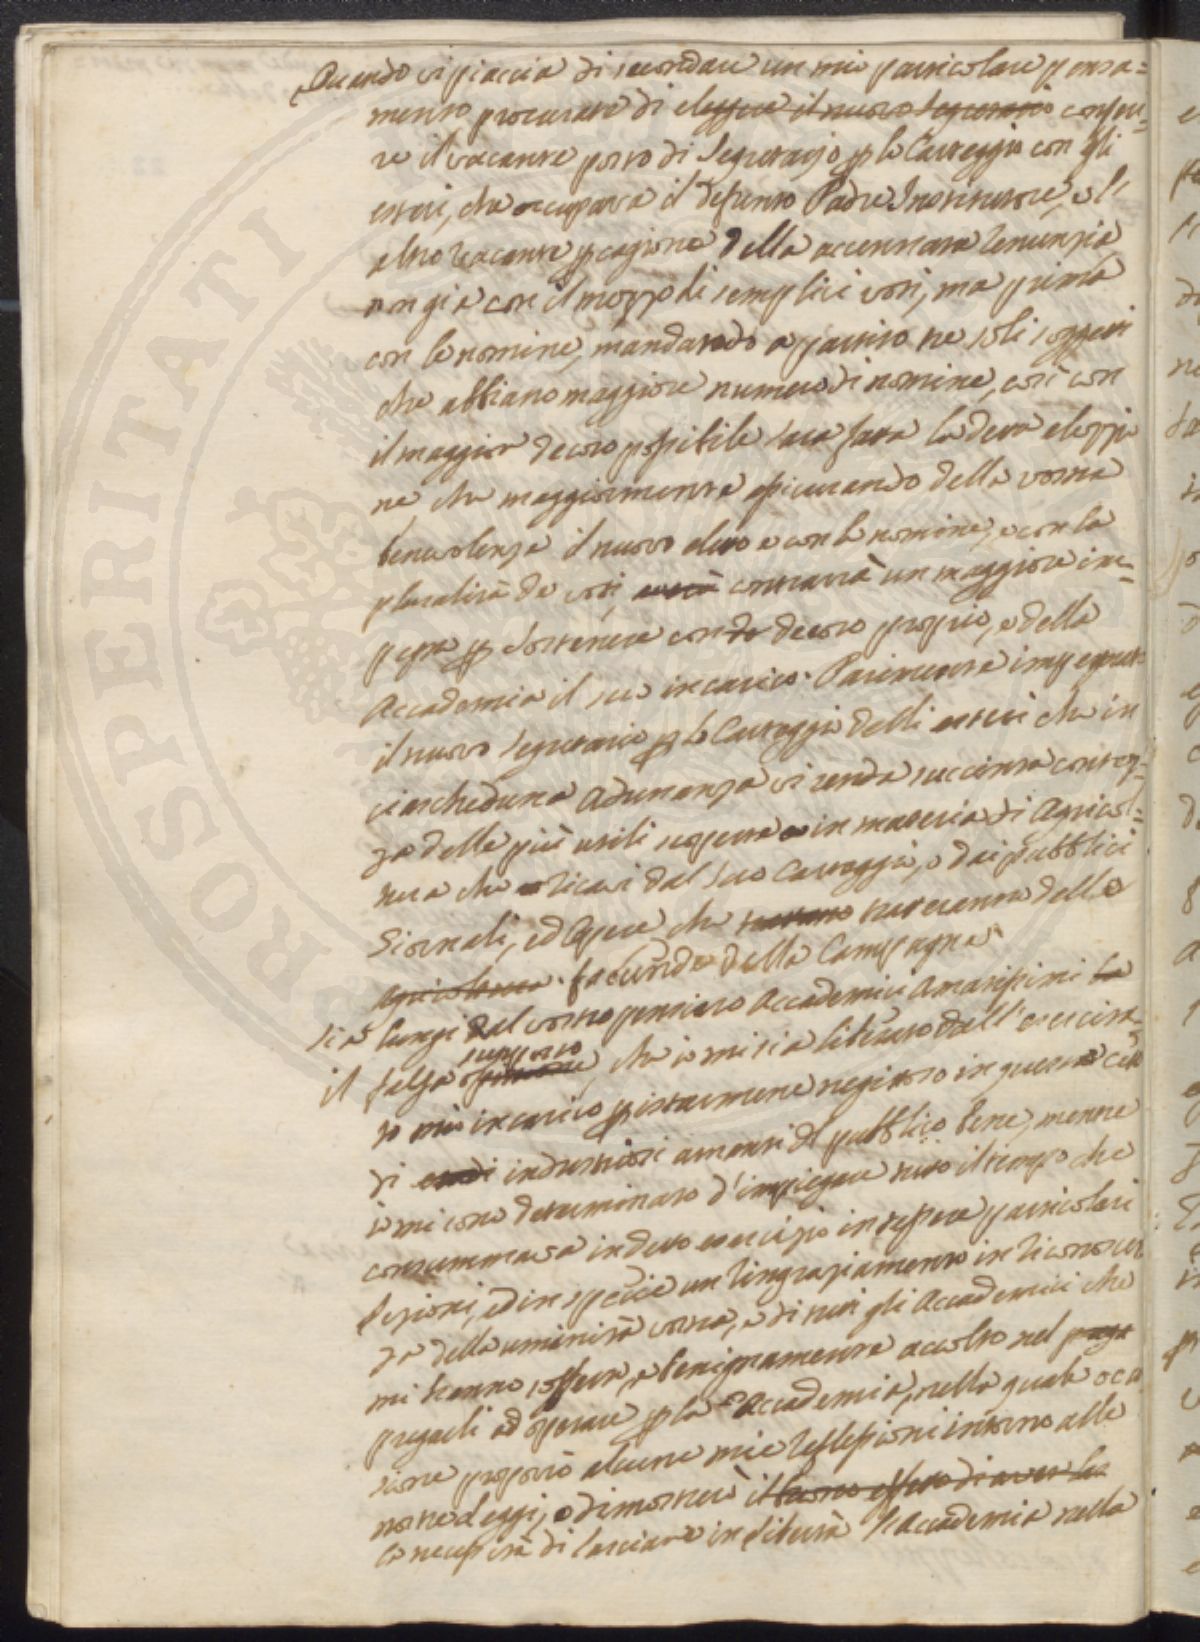 Quando vi piaccia di secondare un mio particolare pensa=
mento procurate di eleggere il nuovo Segretario conferi=
re il vacante posto di Segretario per lo Carteggio con gli
esteri, che occupava il defunto Padre Institutore, e l'
altro vacante per cagione della accennata renunzia
non già con il mezzo di semplici voti, ma prima
con le nomine, mandando a partito ne soli soggetti
che abbiano maggiore numero di nomine, così con
il maggior decoro possibile sarà fatta la detta elezzio
ne che maggiormente assicurando della vostra
benevolenza il nuovo eletto e con le nomine, e con la
pluralità de voti, averà contrarrà un maggiore im=
pegno per sostenere con decoro proprio, e della
Accademia il suo incarico. Parimente impegnate
il nuovo Segretario per lo Carteggio delli esteri che in
ciascheduna Adunanza vi renda succinta contez=
za delle più utili scoperte in materia di Agricol=
tura che ricavi dal suo Carteggio, e dai pubblici
Giornali, ed Opere che trattano tratteranno della
agricoltura. faccende della Campagna
Sia lungi dal vostro pensiero Accademici Amatissimi la
supposto
il falsa opinione, che io mi sia liberato dall'esercita
to mio incarico per starmene neghittoso in questo Ceto
di industriosi amanti del pubblico bene, mentre
io mi sono determinato d'impiegare tutto il tempo che
consummava in detto esercizio in tessere particolari
Lezioni, ed in specie un ringraziamento in riconoscen
za della umanità vostra, e di tutti gli Accademici che
mi hanno sofferto, e benignamente accolto nel
pregarli ad operare per la Accademia, nella quale occa
sione proporrò alcune mie riflessioni intorno alle
nostre Leggi, e dimostrerò il buono effetto di aver la
la necessità di lasciare in libertà l'Accademia nella
PROSPERITATI